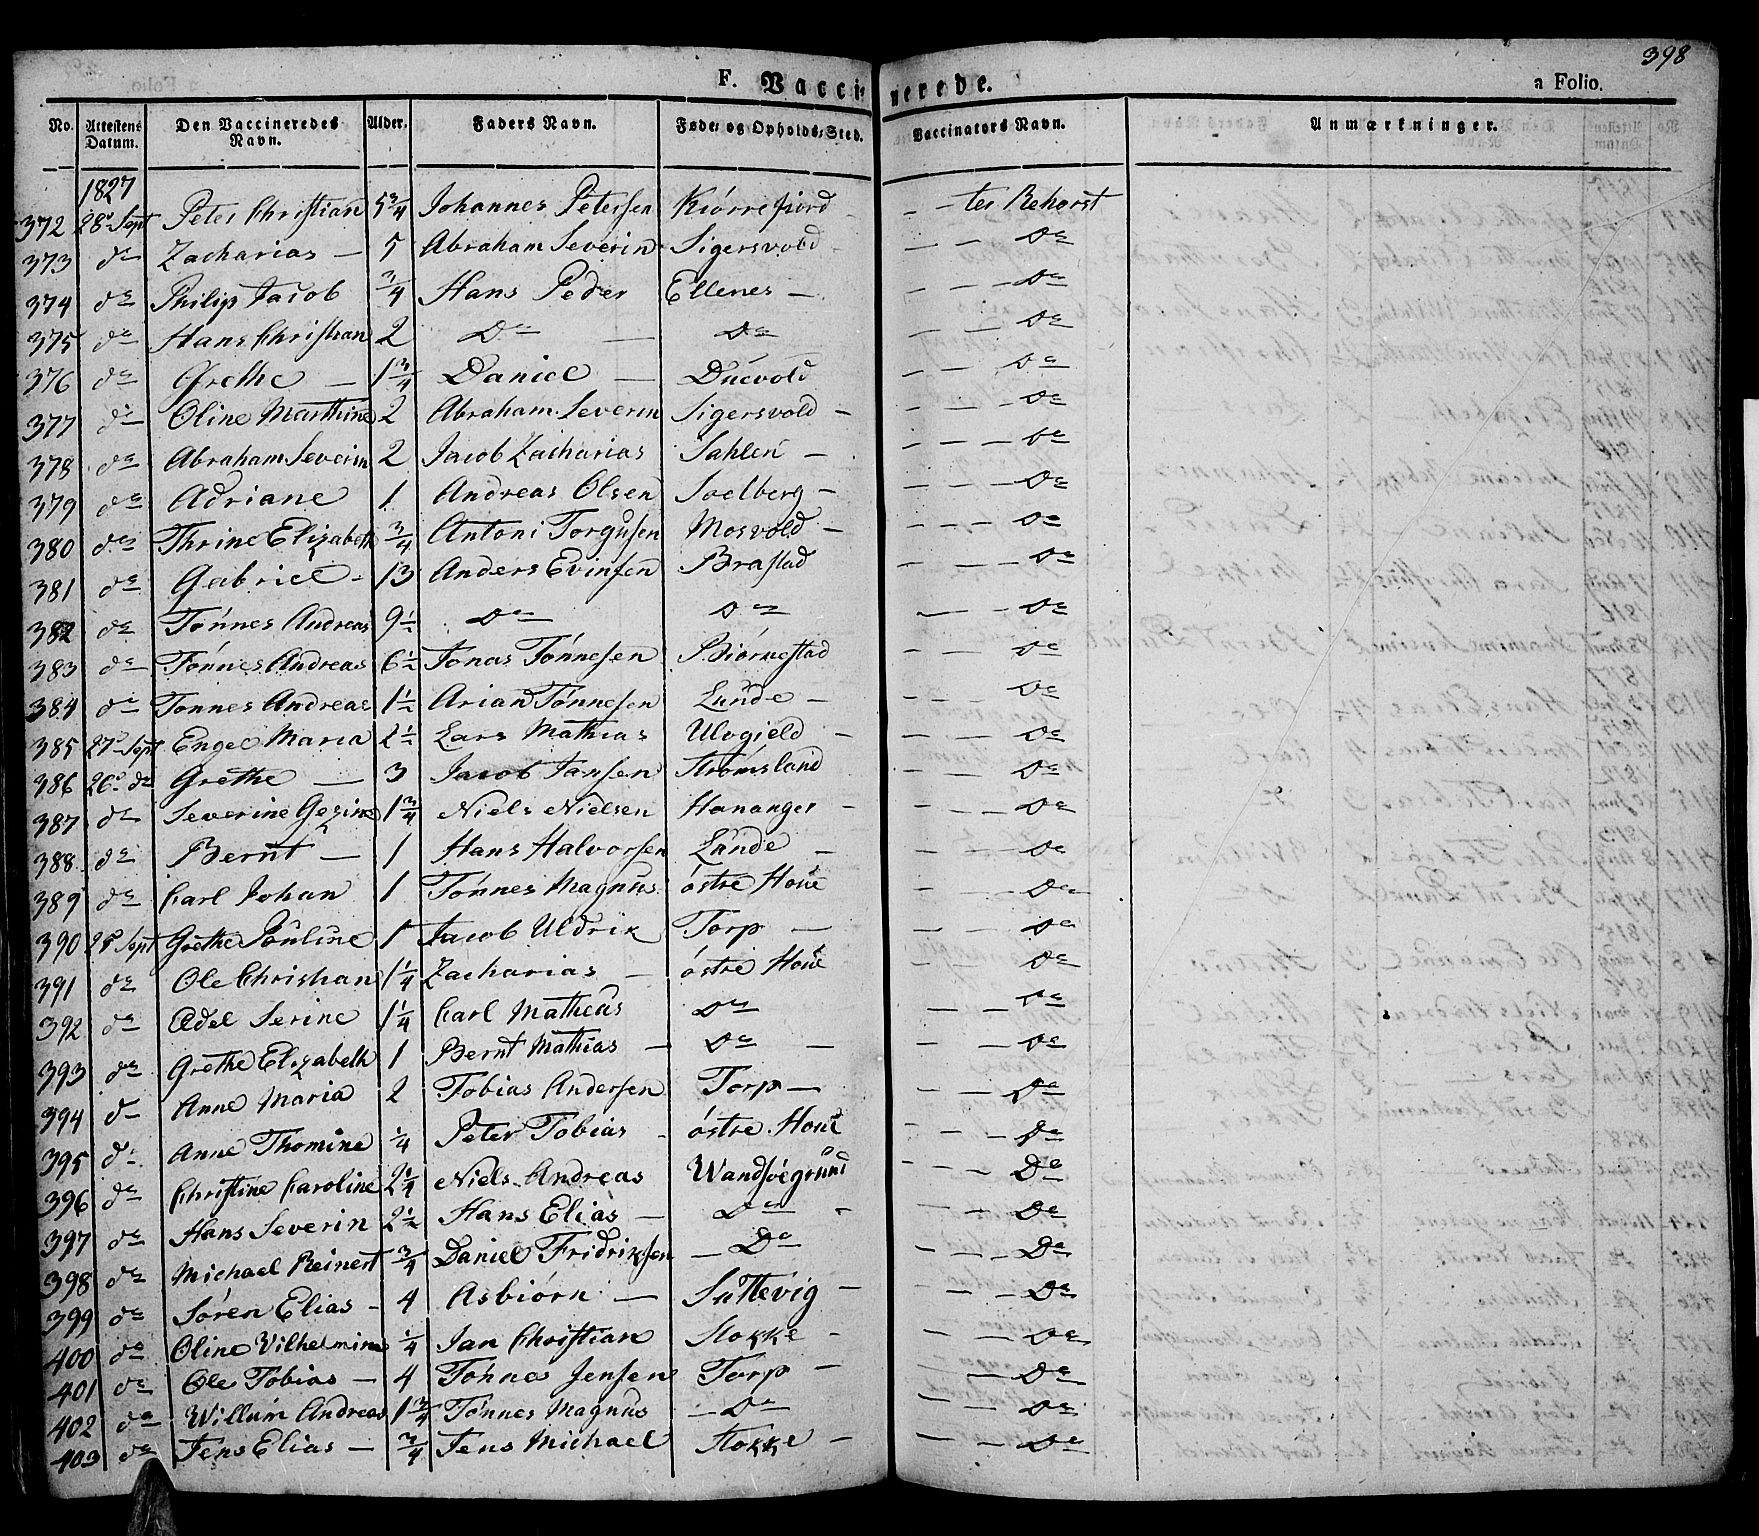 398
F. Vaccinerede. a Folio.
No. Attestens Datum. Den Vaccineredes Navn. Alder. Faders Navn. Føde- og Opholds-Sted. Vaccinators Navn. Anmærkninger.
1827
372 28 Sept Peter Christian 5 3/4 Johannes Petersen Kiørrefiord - — — ter Rehorst
373 do Zacharias — 5 Abraham Severin Sigersvold — — Do
374 do Philip Jacob 3/4 Hans Peder Ellenes — — — — Do
375 do Hans Christian 2 Do — Do — — — Do
376 do Grethe — 1 3/4 Daniel — Duevold — — — Do
377 do Oline Marthine 2 Abraham Severin Sigersvold — — — — Do
378 do Abraham Severin 2 Jacob Zacharias Sahlen — — — — Do
379 do Adriane 1 Andreas Olsen Soelberg — — — — Do
380 do Thrine Elizabeth 3/4 Antoni Torgusen Mosvold — — — — Do
381 do Gabriel - 13 Anders Evinsen Brastad — — — Do
382 do Tønnes Andreas 9 1/2 Do Do — — — Do
383 do Tønnes Andreas 6 1/2 Jonas Tønnesen Biørnestad — — — Do
384 do Tønnes Andreas 1 1/2 Arian Tønnesen Lunde — — — — Do
385 27 Sept Engel Maria 2 1/2 Lars Mathias Ulvgield — — — — Do
386 26 do Grethe — 3 Jacob Jansen Strømsland — — — Do
387 do Severine Gezine 1 3/4 Niels Nielsen Hananger - — — — Do
388 do Bernt — 1 Hans Halvorsen Lunde — — — — Do
389 do Carl Johan 1 Tønnes Magnus østre Houe — — — Do
390 25 Sept Grethe Pouline 1 Jacob Uldrik Torp — — — — Do
391 do Ole Christian 1 1/4 Zacharias — østre Houe — — — Do
392 do Adel Serine 1 1/4 Carl Matheus Do — — — Do
393 do Grethe Elizabeth 1 Bernt Mathias — Do — — — — Do
394 d— Anne Maria 2 Tobias Andersen Torp — — — — Do
395 do Anne Thomine 1/4 Peter Tobias - østre Houe — — — Do
396 do Christine Caroline 2 1/4 Niels Andreas Wandsøegrund — — — Do
397 do Hans Severin 2 1/2 Hans Elias — Do - — — — Do
398 do Michael Reinert 3/4 Daniel Fridriksen — Do — — — Do
399 do Søren Elias - 4 Asbiørn — Sattevig — — — — Do
400 do Oline Vilhelmine 1/4 Jan Christian Stokke - — — — Do
401 do Ole Tobias — 4 Tønnes Jensen Torp — — — — Do
402 do Willum Andreas 1 3/4 Tønnes Magnus — Do — — — Do
403 do Jens Elias — 3/4 Jens Michael Stokke — — — — Do